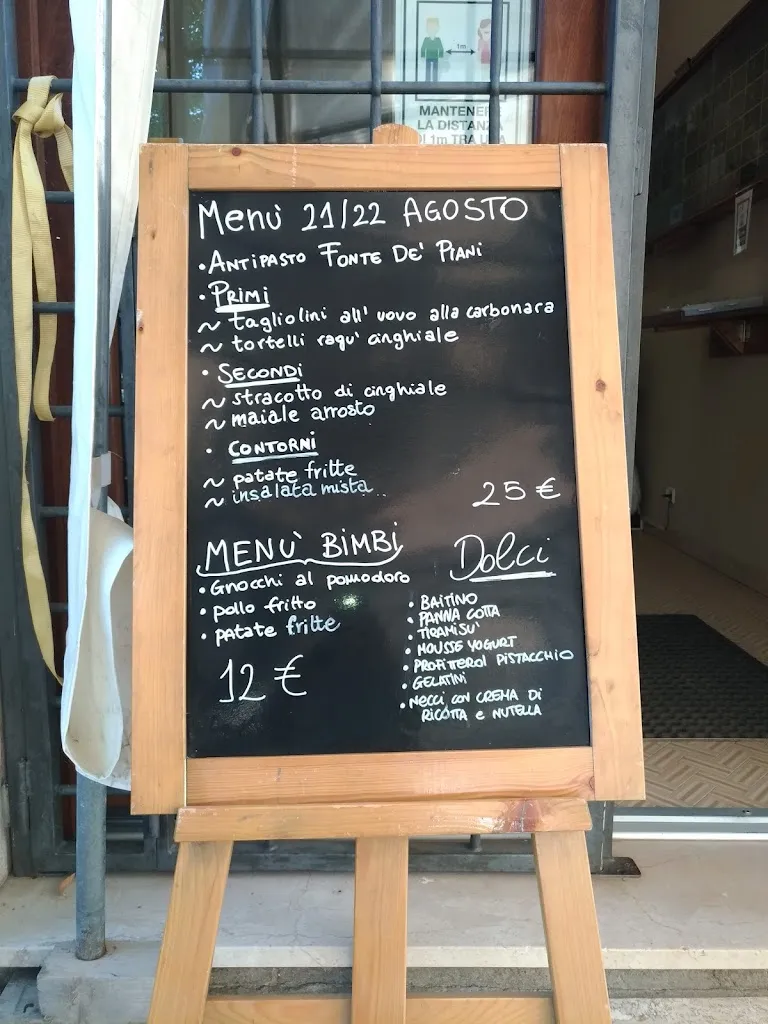 1m
MANTENERE
LA DISTANZA
DI 1m TRA
Menù 21/22 AGOSTO
• ANTIPASTO FONTE DE' PIANI
• PRIMI
~ tagliolini all' uovo alla carbonara
~ tortelli ragu' cinghiale
• SECONDI
~ stracotto di cinghiale
~ maiale arrosto
• CONTORNI
~ patate fritte
~ insalata mista
25 €
MENÙ BIMBI
• Gnocchi al pomodoro
• pollo fritto
• patate fritte
12 €
Dolci
• BAITINO
• PANNA COTTA
• TIRAMISU'
• MOUSSE YOGURT
• PROFITTEROL PISTACCHIO
• GELATINI
• NECCI CON CREMA DI
RICOTTA e NUTELLA